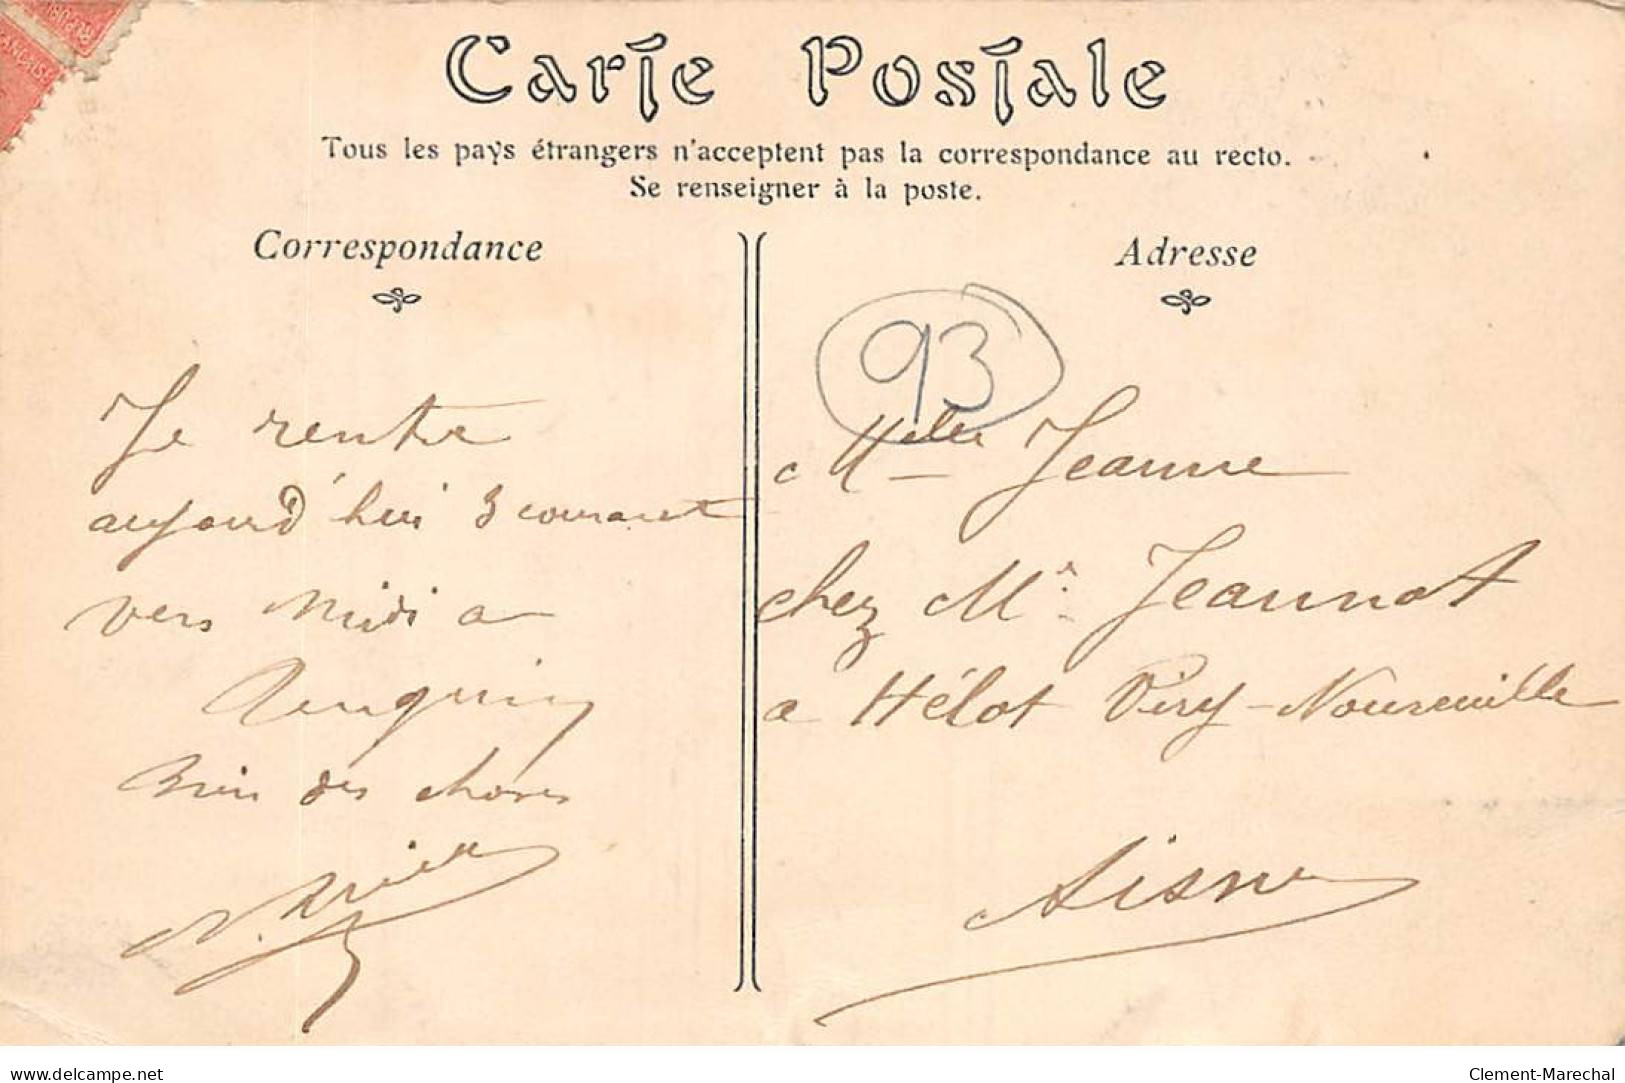 Carte Postale
Tous les pays étrangers n'acceptent pas la correspondance au recto.
Se renseigner à la poste.
Correspondance
Adresse
93
Je rentre
aujourd'hui 3 courant
vers Midi a
Bien des choses
Melle Jeanne
chez Mr Jeannot
a Hélot Viry-Noureuille
Aisne
delcampe.net
Clement-Marechal